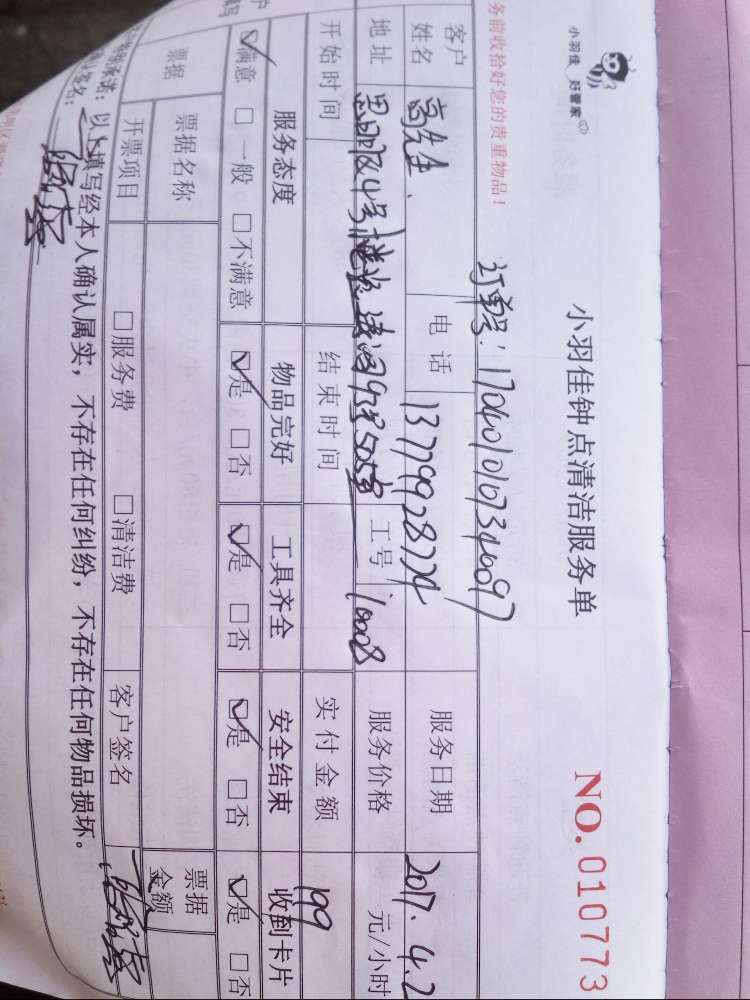 小羽佳 好管家
小羽佳钟点清洁服务单
NO. 010773
务前收拾好您的贵重物品!
订单号:
客户姓名 高先生 电话 13779928774 服务日期 2017.4.2
地址 思明区 4号楼 505室 工号 10008 服务价格 元/小时
开始时间 结束时间 实付金额 199
服务态度 物品完好 工具齐全 安全结束 收到卡片
☑满意 □一般 □不满意 ☑是 □否 ☑是 □否 ☑是 □否 ☑是 □否
票据 票据名称 票据金额
开票项目 □服务费 □清洁费 客户签名
承诺:以上填写经本人确认属实,不存在任何纠纷,不存在任何物品损坏。
签名: